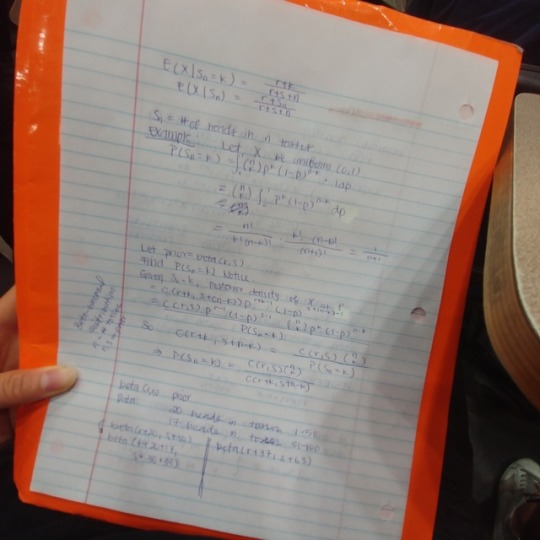 E(X|Sn=k) = r+k / r+s+n
E(X|Sn) = r+Sn / r+s+n
Sn = # of heads in n tosses
Example: Let X be uniform (0,1)
P(Sn=k) = ∫ (n k) p^k (1-p)^n-k · 1dp
= (n k) ∫ p^k (1-p)^n-k dp
= n! / k!(n-k)! · k! (n-k)! / (n+1)! = 1 / n+1
Let prior = beta(r,s)
Find P(Sn=k) Notice
Given Sn=k, posterior density of X at p
= C(r+k, s+(n-k)) p^r+k-1 (1-p)^s+n-k-1
= C(r,s) p^r-1 (1-p)^s-1 (n k) p^k (1-p)^n-k
P(Sn=k)
So C(r+k, s+n-k) = C(r,s) (n k) / P(Sn=k)
⇒ P(Sn=k) = C(r,s) (n k) / C(r+k, s+n-k)
beta(r,s) prior
Data: 20 heads in tosses 1-50
17 heads in tosses 51-100
beta(r+20, s+30)
beta(r+20+17, s+30+33)
beta(r+37, s+63)